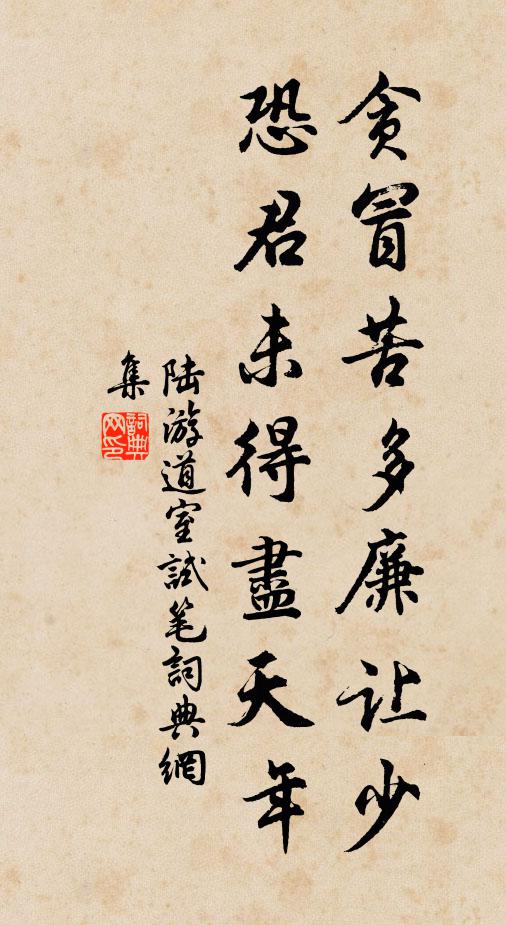 贪冒苦多廉让少
恐君未得盡天年
陆游道室試笔詞典網
集
詞典
网印